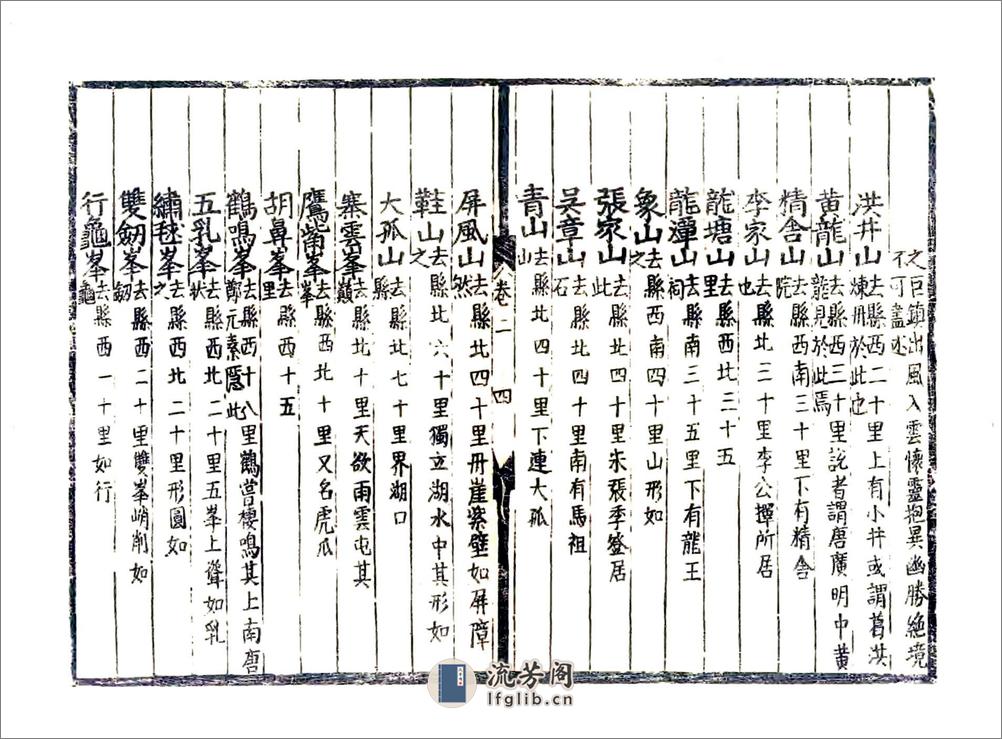 之巨鎮出風入雲懷靈抱異幽勝絶境
不可盡述
洪井山去縣西二十里上有小井或謂葛洪
煉丹於此也
黄龍山去縣西三十里說者謂唐廣明中黄
龍見於此焉
精舎山去縣西南三十里下有精舎
院
李家山去縣北三十里李公擇所居
也
龍塘山去縣西北三十五
里
龍潭山去縣南三十五里下有龍王
祠
象山去縣西南四十里山形如
之
張山去縣北四十里朱張季登居
此
吴章山去縣北四十里南有馬祖
石
青山去縣北四十里下連大孤
山
卷二 四
屏風山去縣北四十里丹崖紫壁如屏障
然
鞋山去縣北六十里獨立湖水中其形如
之
大孤山去縣北七十里界湖口
縣
寨雲峯去縣北十里天欲雨雲屯其
巔
鷹觜峯去縣西北十里又名虎爪
峯
胡鼻峯去縣西十五
里
鶴鳴峯去縣西十八里鶴嘗棲鳴其上南唐
鄭元素隱此
五乳峯去縣西北二十里五峯上聳如乳
狀
繡毬峯去縣西北二十里形圓如
之
雙劒峯去縣西二十里雙峯峭削如
劒
行龜峯去縣西一十里如行
龜
流芳阁
lfglib.cn